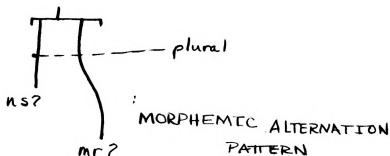 plural
ns?
:
MORPHEMIC ALTERNATION
PATTERN
mr?